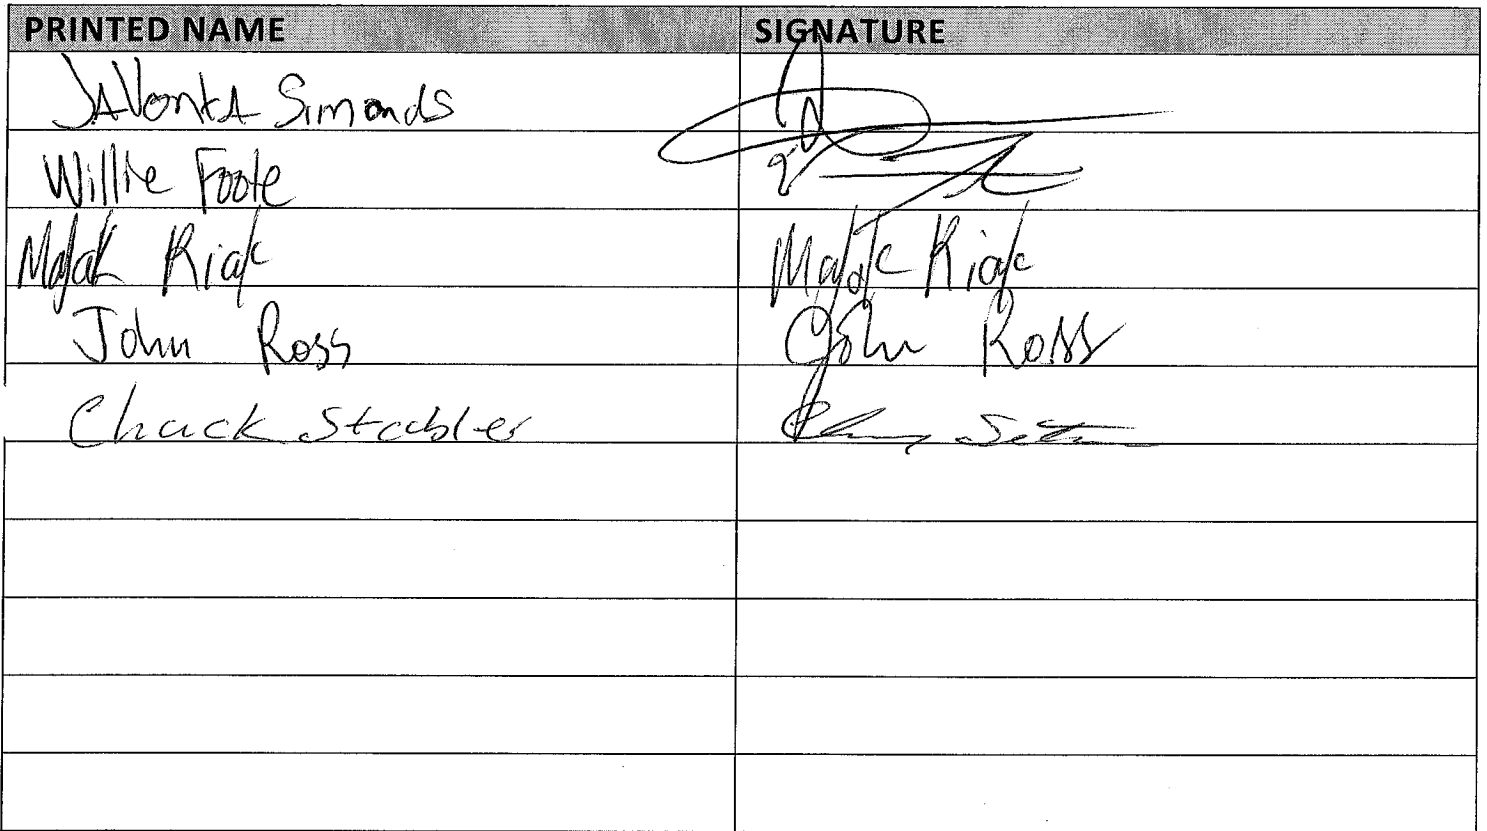 PRINTED NAME SIGNATURE
JAVontA Simonds
Willie Foote
Majak Riak Majok Riak
John Ross John Ross
Chuck Stabler